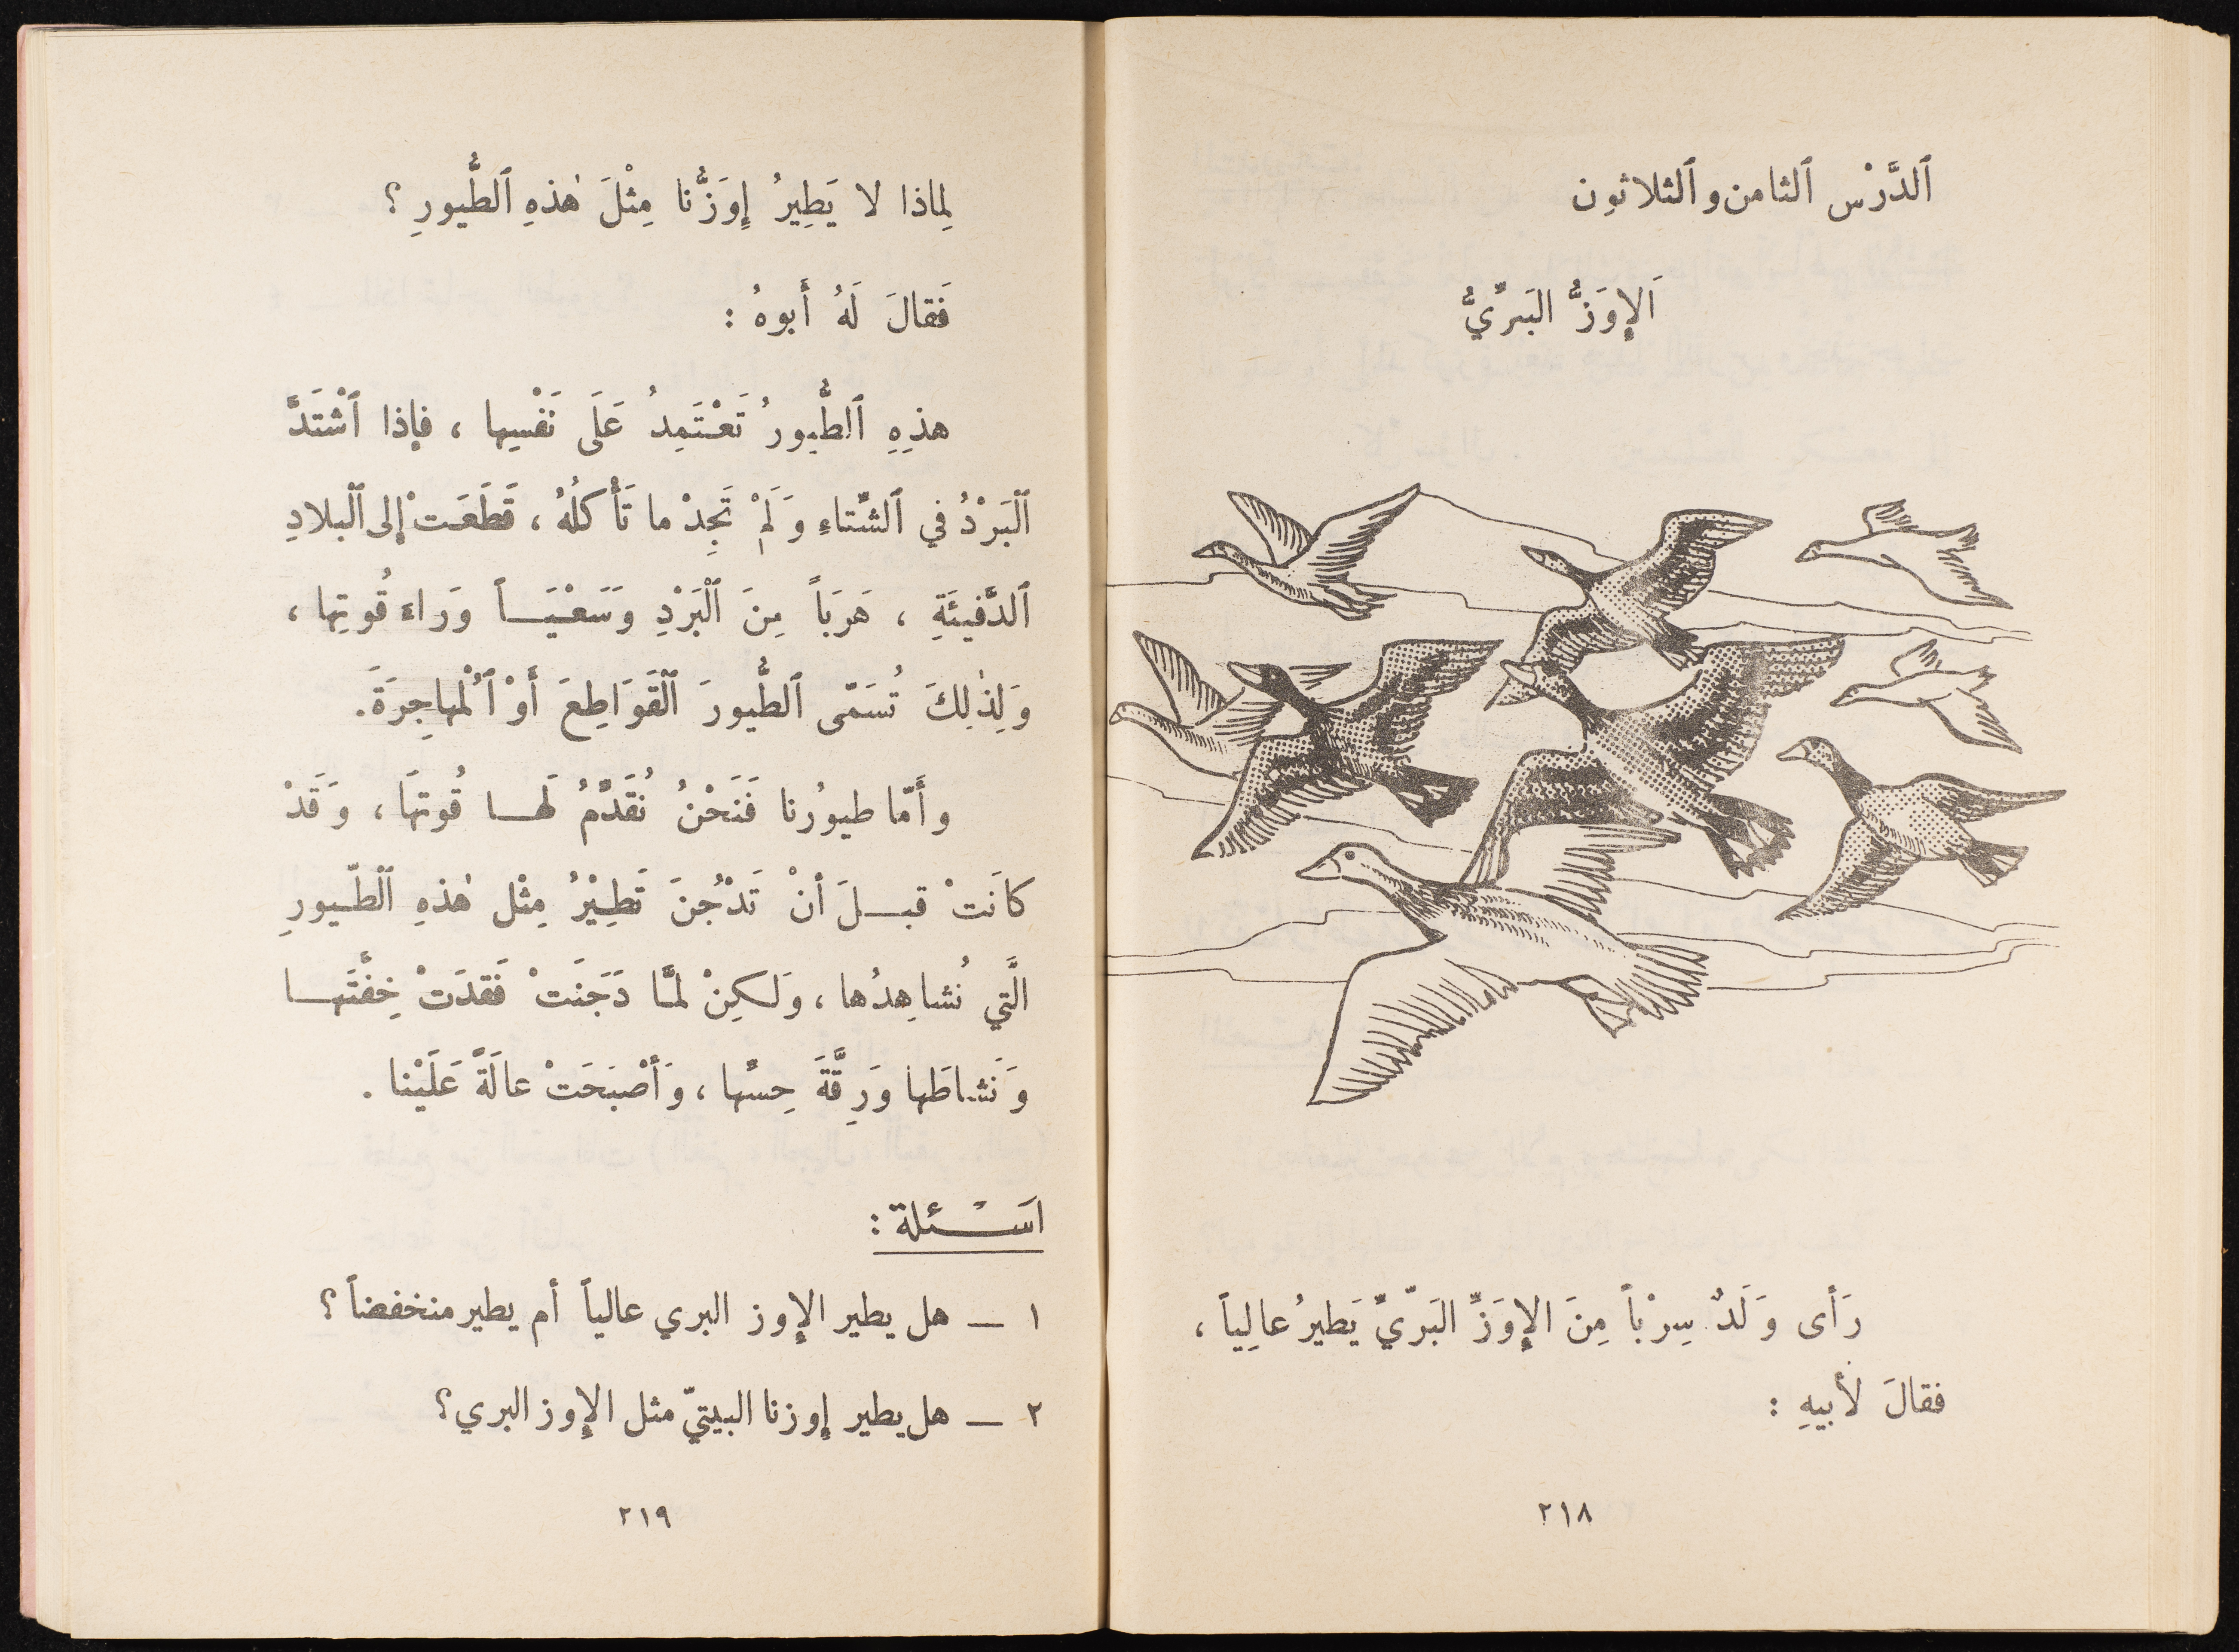 ٱلدَّرْس ٱلثامن وٱلثلاثون
اَلإِوَزُّ البَرِّيُّ
رَأى وَلَدٌ سِرْباً مِنَ الإِوَزِّ البَرّيِّ يَطيرُ عالِياً ،
فقالَ لأَبيهِ :
٢١٨
لِماذا لا يَطِيرُ إِوَزُّنا مِثْلَ هٰذهِ ٱلطُّيورِ ؟
فَقالَ لَهُ أَبوهُ :
هذِهِ ٱلطُّيورُ تَعْتَمِدُ عَلَى نَفْسِها ، فإذا ٱشْتَدَّ
ٱلْبَرْدُ في ٱلشِّتاءِ وَلَمْ تَجِدْ ما تَأْكُلُهُ ، قَطَعَتْ إلى ٱلْبلادِ
ٱلدَّفيئَةِ ، هَرَباً مِنَ ٱلْبَرْدِ وَسَعْيَـاً وَراءَ قُوتِها ،
وَلِذٰلِكَ تُسَمّى ٱلطُّيورَ ٱلْقَوَاطِعَ أَوْ ٱلْمُهاجِرَةَ.
وأَمّا طيورُنا فَنَحْنُ نُقَدِّمُ لَهـا قُوتَهَا ، وَقَدْ
كانَتْ قبـلَ أنْ تَدْجُنَ تَطِيْرُ مِثْل هٰذهِ ٱلطّيورِ
الَّتي نُشاهِدُها ، وَلكِنْ لمَّا دَجَنَتْ فَقدَتْ خِفَّتَهـا
وَنَشاطَها وَرِقَّةَ حِسِّها ، وَأَصْبَحَتْ عالَةً عَلَيْنا .
اَسْـئلة :
١ ــ هل يطير الإوز البري عالياً أم يطير منخفضاً ؟
٢ ــ هل يطير إوزنا البيتيّ مثل الإوز البري ؟
٢١٩